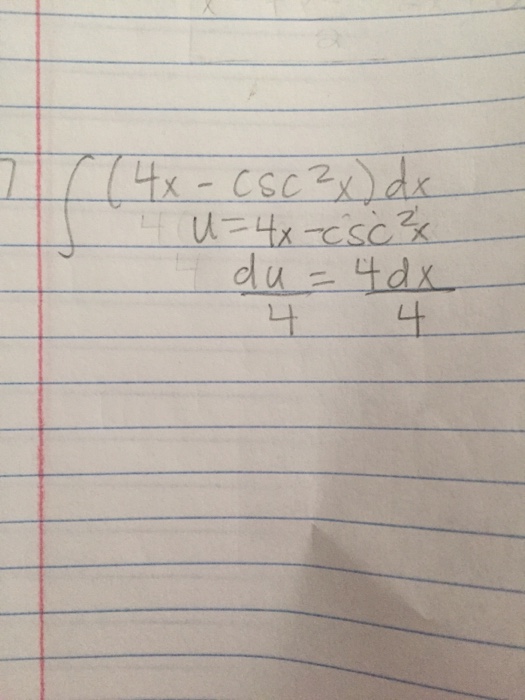 7 ∫(4x - csc²x) dx
u = 4x - csc²x
du = 4dx
4 4